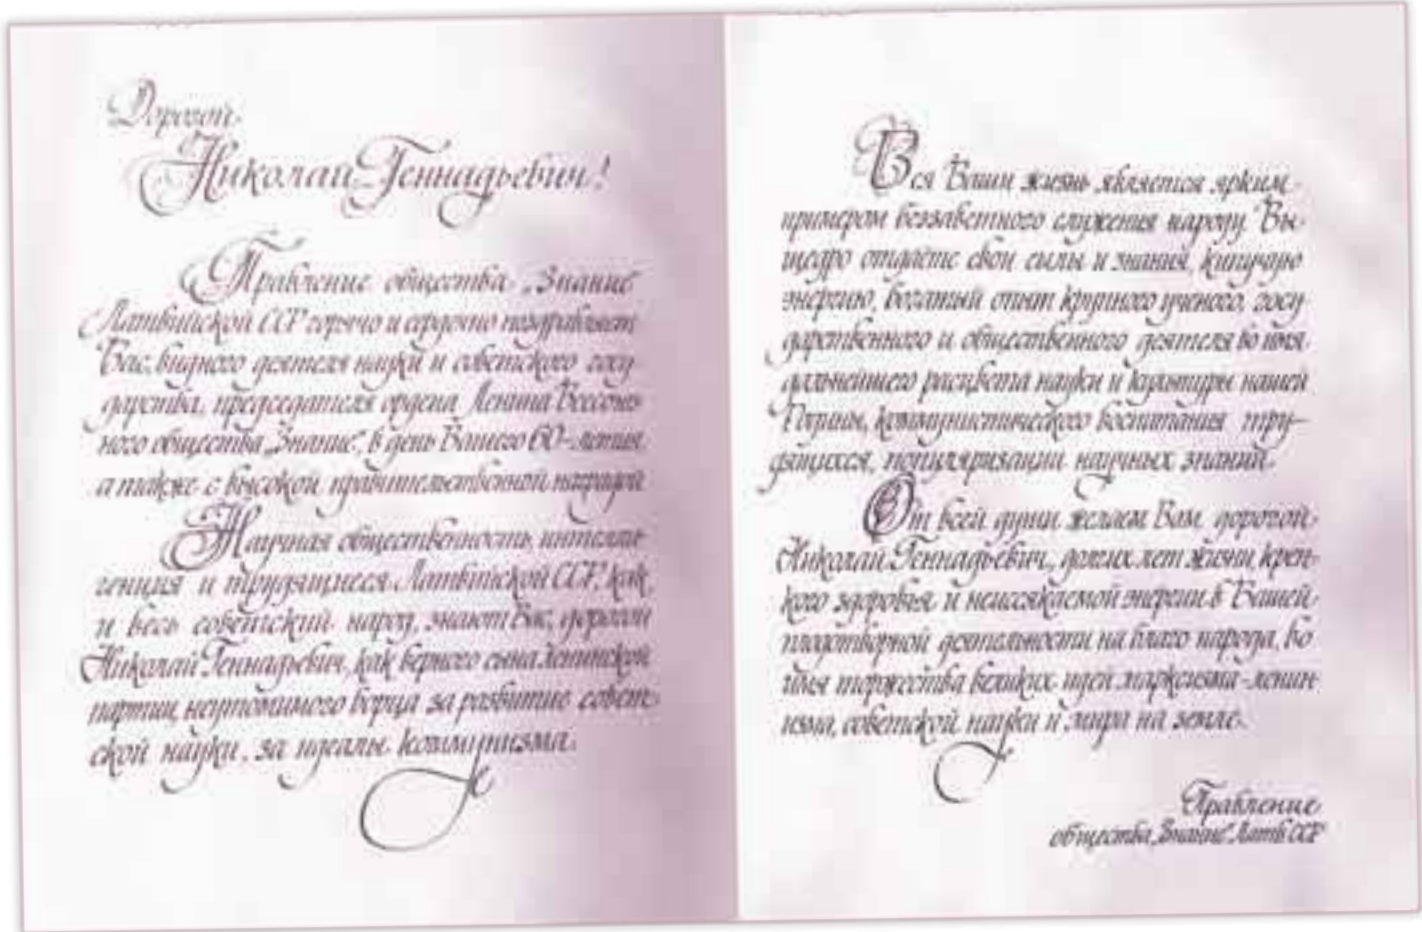 Дорогой
Николай Геннадьевич!
Правление общества „Знание"
Латвийской ССР горячо и сердечно поздравляет
Вас, видного деятеля науки и советского госу-
дарства, председателя ордена Ленина Всесоюз-
ного общества „Знание", в день Вашего 60-летия
а также с высокой правительственной наградой
Научная общественность, интелли-
генция и трудящиеся Латвийской ССР, как
и весь советский народ, знают Вас, дорогой
Николай Геннадьевич, как верного сына ленинской
партии, неутомимого борца за развитие совет-
ской науки, за идеалы коммунизма.
Вся Ваша жизнь является ярким
примером беззаветного служения народу. Вы
щедро отдаете свои силы и знания, кипучую
энергию, богатый опыт крупного ученого, госу
дарственного и общественного деятеля во имя
дальнейшего расцвета науки и культуры нашей
Родины, коммунистического воспитания тру-
дящихся, популяризации научных знаний.
От всей души желаем Вам, дорогой
Николай Геннадьевич, долгих лет жизни, креп-
кого здоровья и неиссякаемой энергии в Вашей
плодотворной деятельности на благо народа, во
имя торжества великих идей марксизма-ленин-
изма, советской науки и мира на земле.
Правление
общества „Знание" Латв.ССР